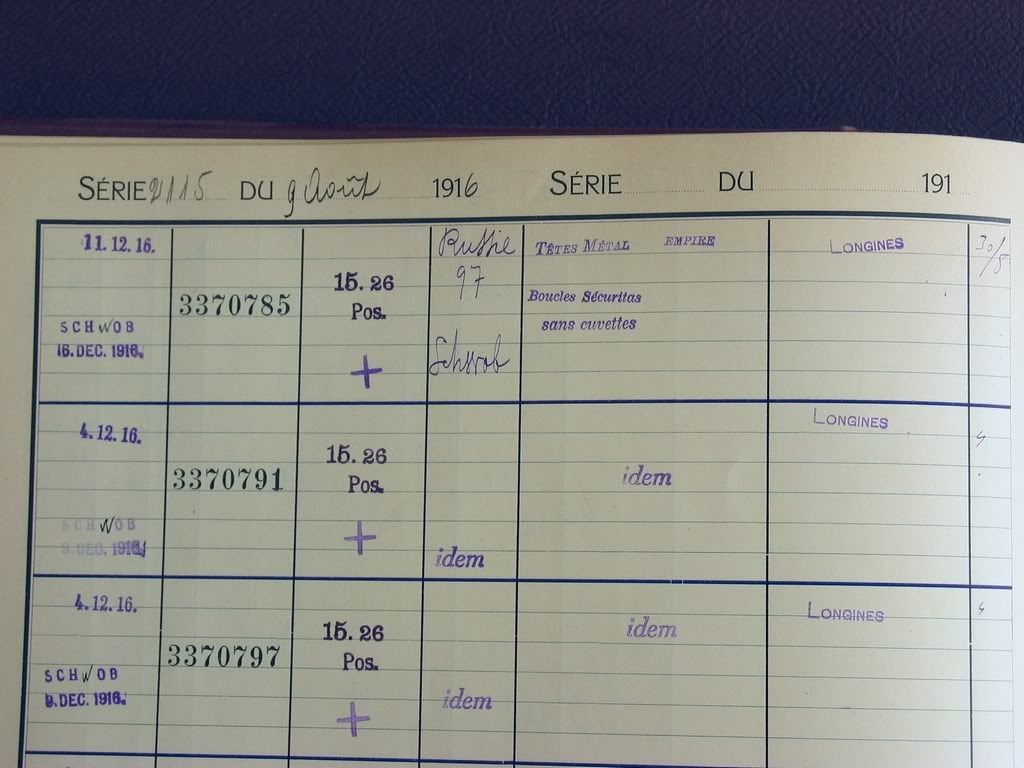 SÉRIE 2115 DU 9 Août 1916 SÉRIE DU 191
11.12.16.
SCHWOB
16.DEC.1916.
3370785
15.26
Pos.
+
Russie
97
Schwob
TÊTES MÉTAL EMPIRE
Boucles Sécuritas
sans cuvettes
LONGINES
30/5
4.12.16.
SCHWOB
9.DEC.1916.
3370791
15.26
Pos.
+
idem
idem
LONGINES
4.12.16.
SCHWOB
9.DEC.1916.
3370797
15.26
Pos.
+
idem
idem
LONGINES